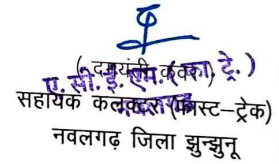 (दमयंती कंवर)
ए. सी. ई. एम. (फा. ट्रे.)
सहायक कलक्टर (फास्ट-ट्रेक)
नवलगढ़ जिला झुन्झुनू